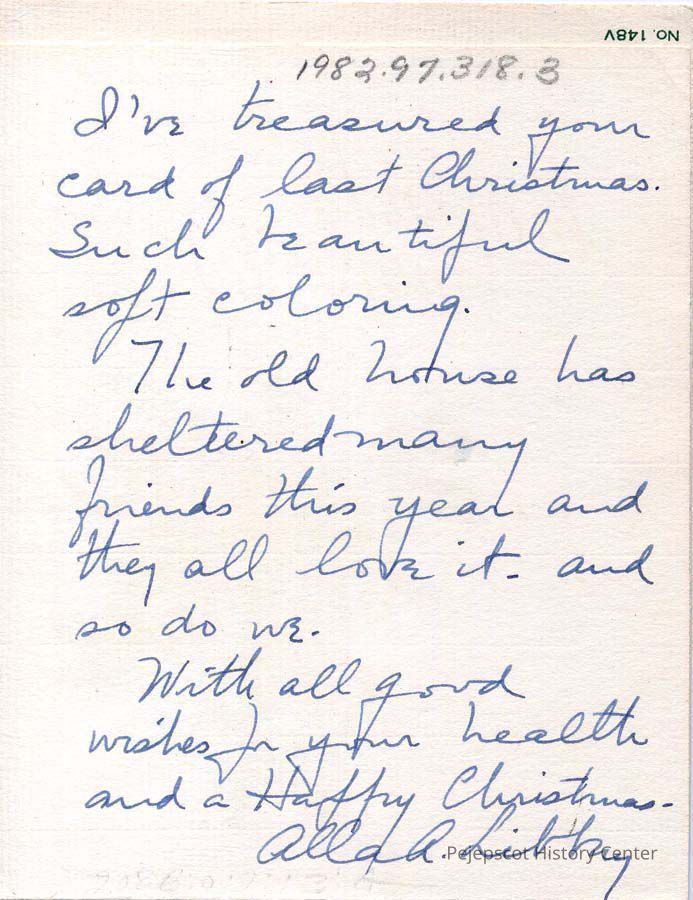 No. 148V
1982.97.318.3
I've treasured your
card of last Christmas.
Such beautiful
soft coloring.
The old house has
sheltered many
friends this year and
they all love it - and
so do we.
With all good
wishes for your health
and a Happy Christmas -
Alla A. Libbey
Pejepscot History Center